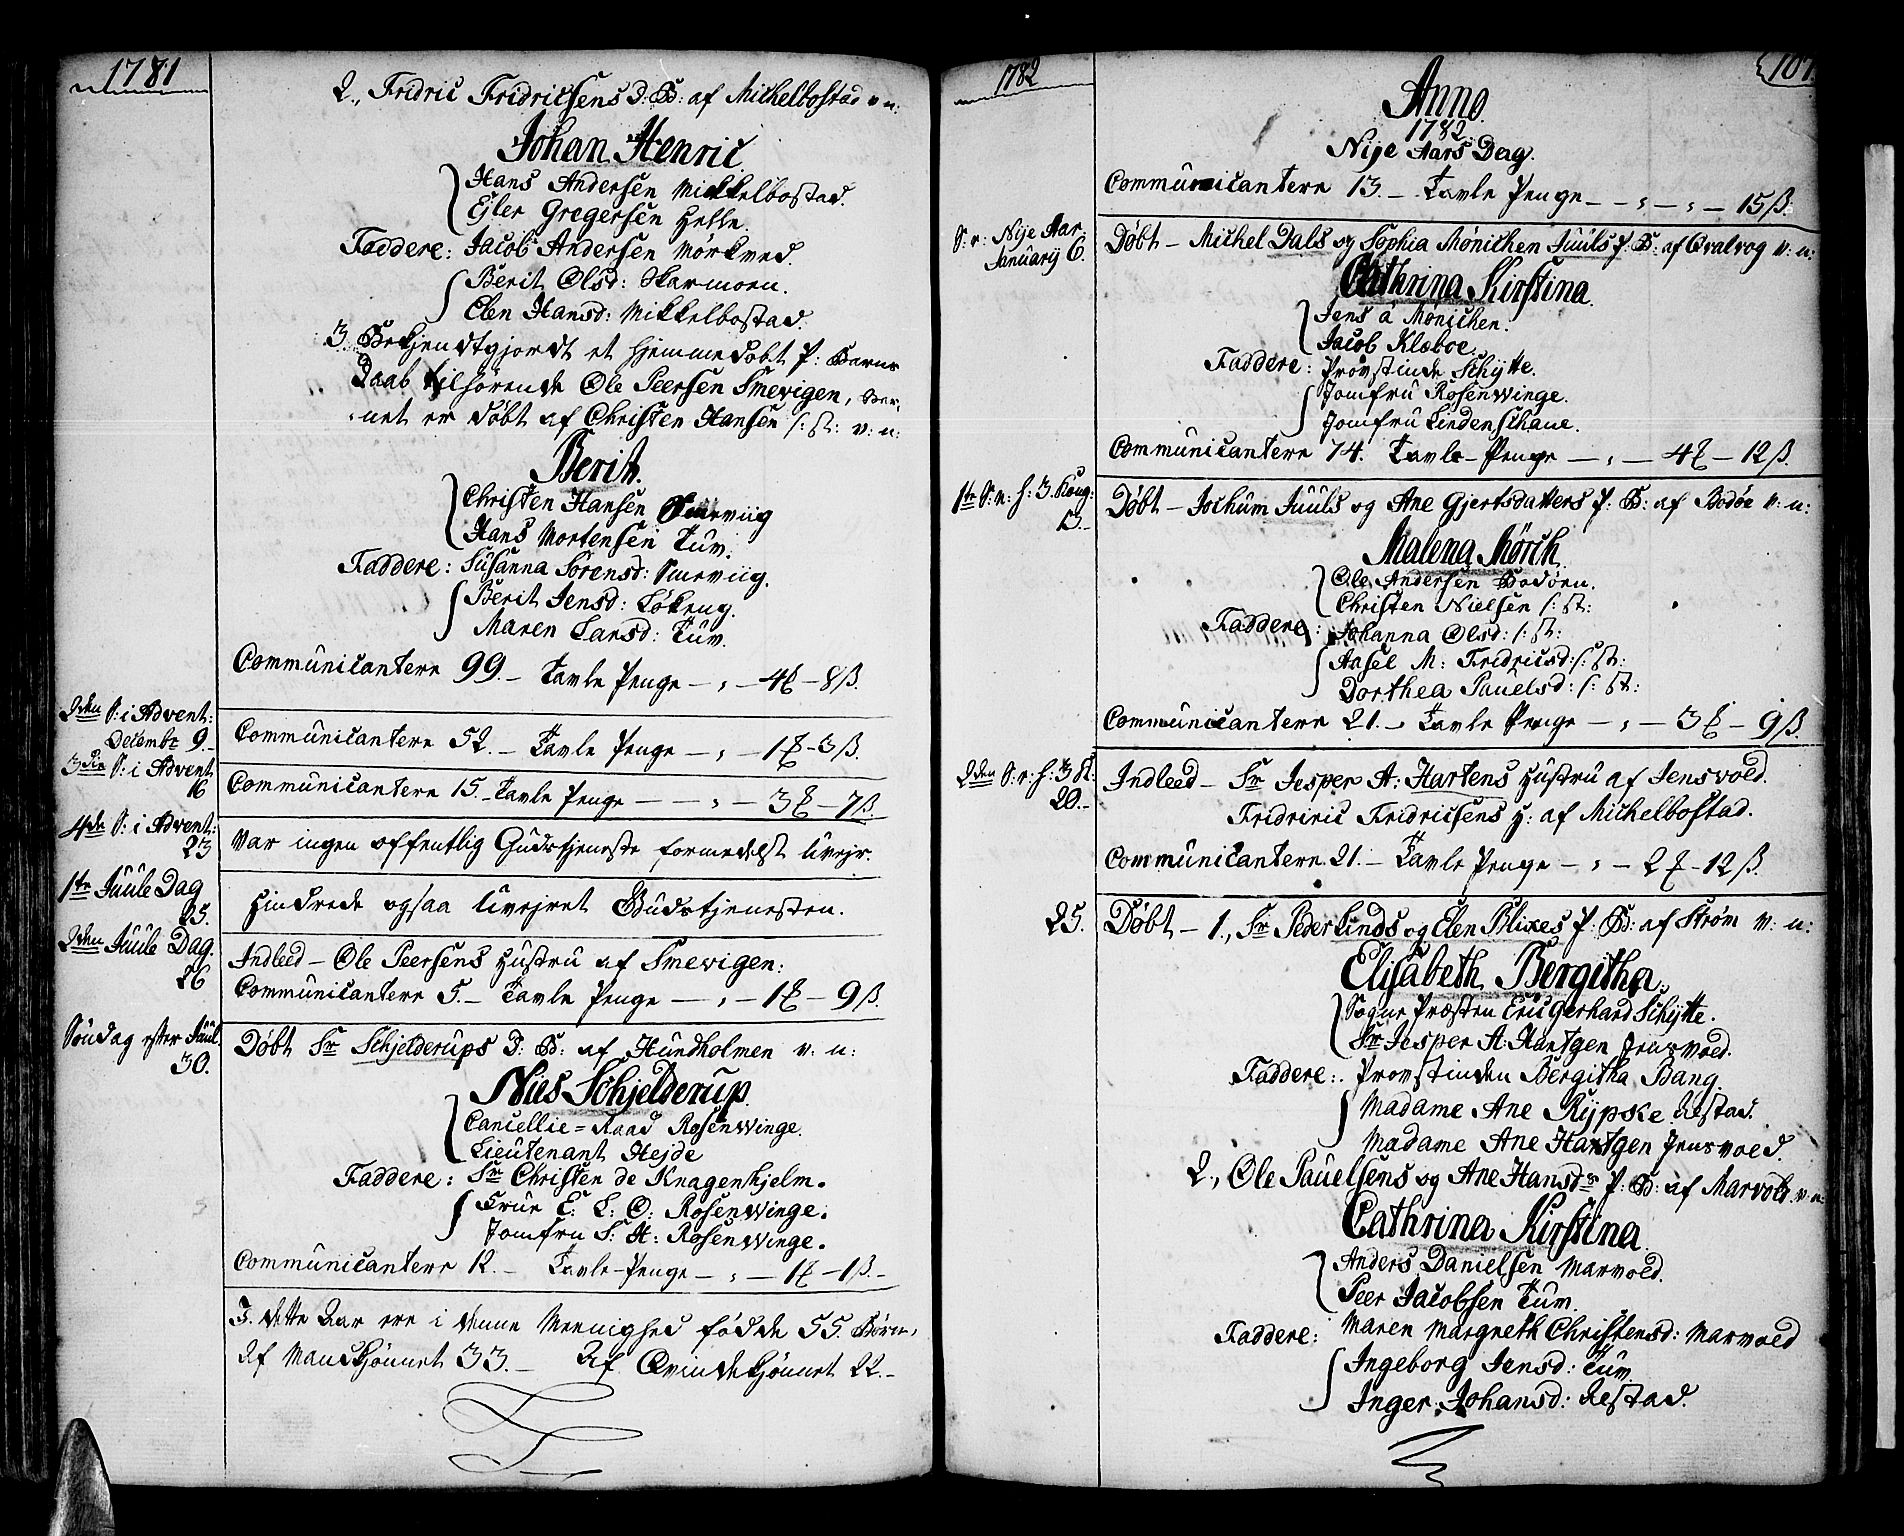 1781
2., Fridric Fridricsens D: B: af Michelbostad v: n:
Johan Henric
Hans Andersen Mikkelbostad.
Ejler Gregersen Helle.
Faddere: Jacob Andersen Mörkved.
Berit Olsd: Skarmoen.
Elen Hansd: Mikkelbostad.
3. Bekjendtgjordt et hjemmedöbt P: Barns
Daab tilhörende Ole Peersen Smevigen, Bar-
net er döbt af Christen Hansen /: st: v: n:
Berit.
Christen Hansen Smeviig
Hans Mortensen Tuv.
Faddere: Susanna Sörensd: Smeviig.
Berit Jensd: Lökeng.
Maren Larsd: Tuv.
Communicantere 99. – Tavle Penge – , – 4 – 8 ß.
2den S: i Advent:
Decembr 9. –
Communicantere 52. – Tavle Penge – , – 1 – 3 ß.
3die S: i Advent
16
Communicantere 15. – Tavle Penge – – , – 3 – 7 ß.
4de S: i Advent:
23
Var ingen offentlig Gudstjeneste formedelst Uvejr.
1te Juule Dag
25.
Hindrede ogsaa Uvejret Gudstjenesten.
2den Juule Dag.
26
Indleed – Ole Peersens Hustru af Smevigen:
Communicantere 5. – Tavle Penge – , – 1 – 9 ß.
Söndag efter Juul
30.
Döbt Sr Schjelderups D: B: af Hundholmen v: n:
Niels Schjelderup
Cancellie = Raad Rosenwinge.
Lieutenant Hejde
Faddere: Sr Christen de Knagenhjelm.
Frue E: L: O: Rosenwinge.
Jomfru S: H: Rosenwinge.
Communicantere 12. – Tavle-Penge – , – 1 – 1 ß. –
I dette Aar ere i denne Meenighed födde 55. Börn,
Af Mandkjönnet 33. – Af Qvindekjönnet 22. –
1782
107.
Anno
1782:
Nije Aars Dag.
Communicantere 13. – Tavle Penge – – , – , – 15 ß.
S: e: Nije Aar.
January 6.
Döbt – Michel Dals og Sophia Mönichen Juuls P: B: af Qvalvog v: n:
Cathrina Kirstina.
Jens á Monichen.
Jacob Klæboe.
Faddere: Provstinde Schytte.
Jomfru Rosenwinge.
Jomfru Lindenschane.
Communicantere 74. Tavle-Penge – , – 4 – 12 ß.
1te S: e: h: 3. Kong:
13. –
Döbt – Jochum Juuls og Ane Gjertsdatters P: B: af Bodöe v: n:
Malena Mörch
Ole Andersen Bodöen.
Christen Nielsen /: st:
Faddere: Johanna Olsd: /: st:
Aasel M: Fridricsd: /: st:
Dorthea Pauelsd: /: st:
Communicantere 21. – Tavle Penge – , – 3 – 9 ß.
2den S: e: h: 3 K:
20. –
Indleed – Sr Jesper A: Hartens Hustru af Jensvold.
Fridriric Fridricsens H: af Michelbostad.
Communicantere 21. – Tavle Penge – , – 2 – 12 ß.
25.
Döbt – 1., Sr Peder Linds og Elen Blixes P: B: af Ström v: n:
Elisabeth Bergitha.
Sogne Præsten Eric Gerhard Schytte.
Sr Jesper A: Hartgen Jensvold.
Faddere: Provstinden Bergitha Bang.
Madame Ane Rypske Lestad.
Madame Ane Hartgen Jensvold.
2., Ole Pauelsens og Ane Hansdr P: B: af Marvold v: n:
Cathrina Kirstina
Anders Danielsen Marvold.
Peer Jacobsen Tuv.
Faddere: Maren Margreth Christensd: Marvold
Ingeborg Jensd: Tuv.
Inger Johansd: Lestad.